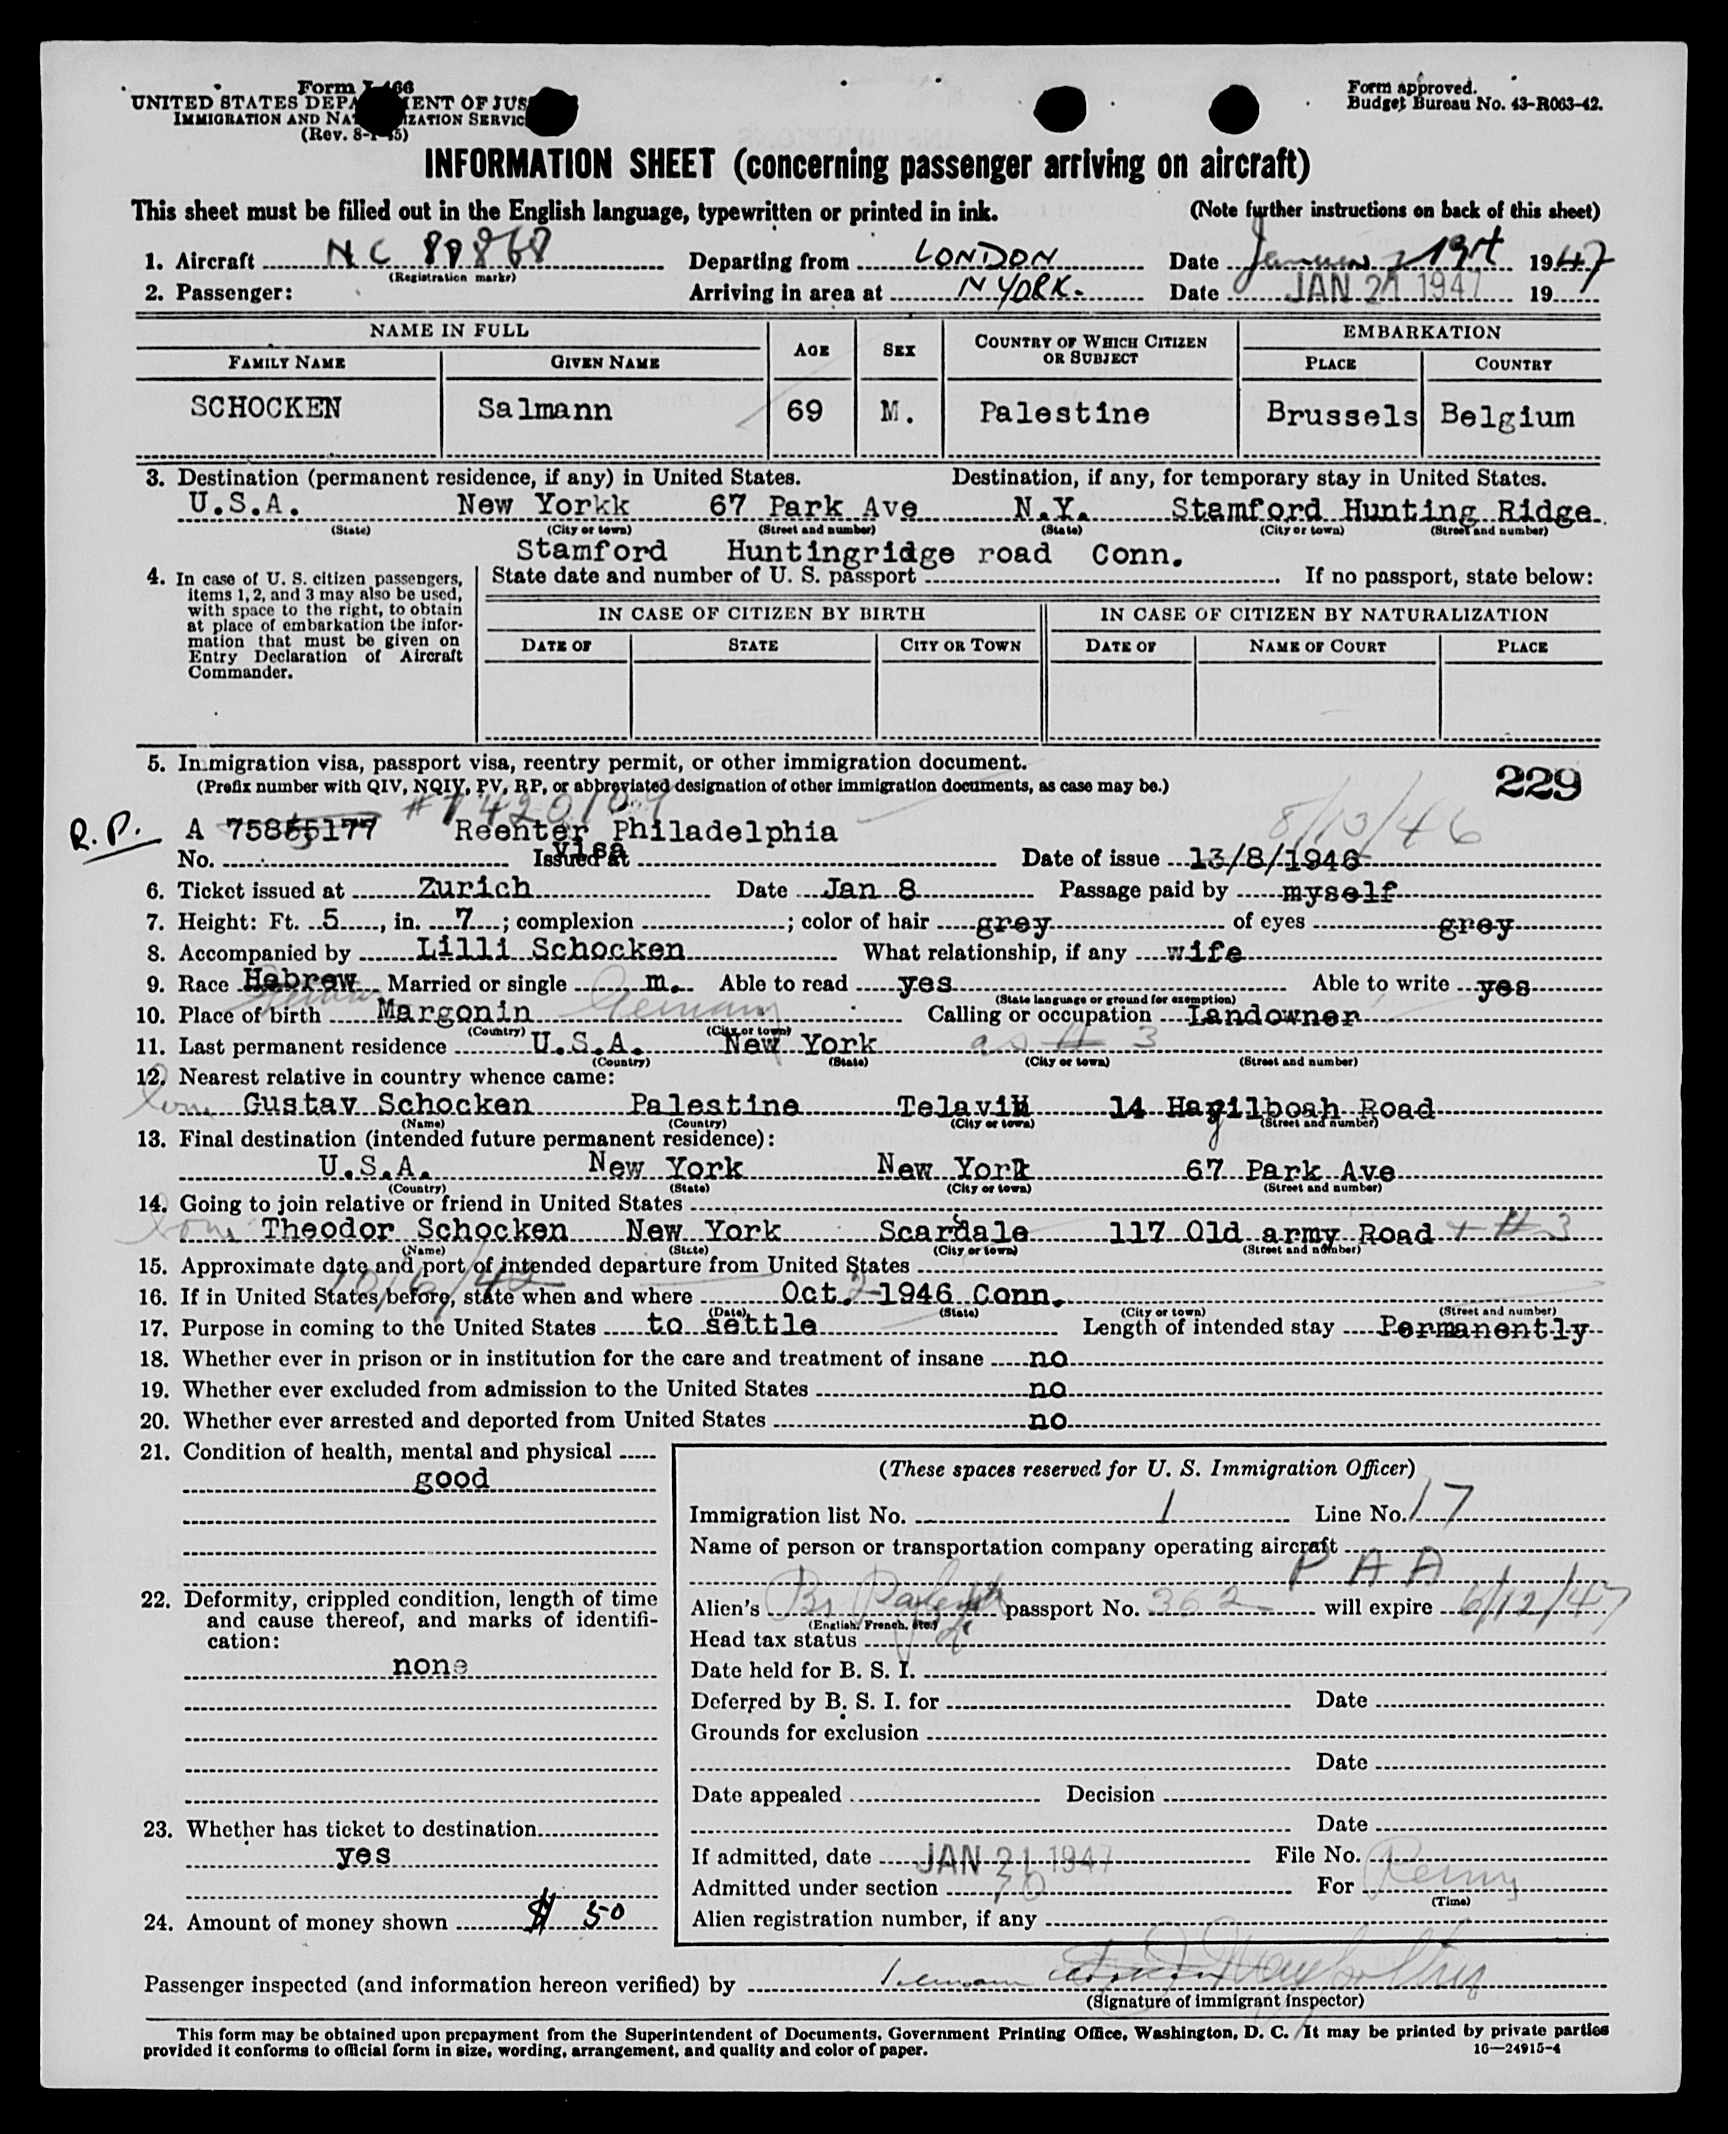 Form I-466
UNITED STATES DEPARTMENT OF JUSTICE
IMMIGRATION AND NATURALIZATION SERVICE
(Rev. 8-1-45)
Form approved.
Budget Bureau No. 43-R063-42.
INFORMATION SHEET (concerning passenger arriving on aircraft)
This sheet must be filled out in the English language, typewritten or printed in ink. (Note further instructions on back of this sheet)
1. Aircraft NC 88868 Departing from LONDON Date January 21st 1947
(Registration marks)
2. Passenger: Arriving in area at N YORK. Date JAN 21 1947 19
NAME IN FULL AGE SEX COUNTRY OF WHICH CITIZEN OR SUBJECT EMBARKATION
FAMILY NAME GIVEN NAME PLACE COUNTRY
SCHOCKEN Salmann 69 M. Palestine Brussels Belgium
3. Destination (permanent residence, if any) in United States. Destination, if any, for temporary stay in United States.
U.S.A. New Yorkk 67 Park Ave N.Y. Stamford Hunting Ridge
(State) (City or town) (Street and number) (State) (City or town) (Street and number)
Stamford Huntingridge road Conn.
4. In case of U. S. citizen passengers, items 1, 2, and 3 may also be used, with space to the right, to obtain at place of embarkation the information that must be given on Entry Declaration of Aircraft Commander.
State date and number of U. S. passport If no passport, state below:
IN CASE OF CITIZEN BY BIRTH IN CASE OF CITIZEN BY NATURALIZATION
DATE OF STATE CITY OR TOWN DATE OF NAME OF COURT PLACE
5. Immigration visa, passport visa, reentry permit, or other immigration document.
(Prefix number with QIV, NQIV, PV, RP, or abbreviated designation of other immigration documents, as case may be.)
229
#1420109 8/13/46
R.P. A 75855177 Reenter Philadelphia
visa
No. Issued at Date of issue 13/8/1946
6. Ticket issued at Zurich Date Jan 8 Passage paid by myself
7. Height: Ft. 5, in. 7; complexion ; color of hair grey of eyes grey
8. Accompanied by Lilli Schocken What relationship, if any wife
9. Race Hebrew Married or single m. Able to read yes Able to write yes
(State language or ground for exemption)
10. Place of birth Margonin Germany Calling or occupation Landowner
(Country) (City or town)
11. Last permanent residence U.S.A. New York as # 3
(Country) (State) (City or town) (Street and number)
12. Nearest relative in country whence came:
Son Gustav Schocken Palestine Telaviv 14 Hagilboah Road
(Name) (Country) (City or town) (Street and number)
13. Final destination (intended future permanent residence):
U.S.A. New York New York 67 Park Ave
(Country) (State) (City or town) (Street and number)
14. Going to join relative or friend in United States
Son Theodor Schocken New York Scarsdale 117 Old army Road + # 3
(Name) (State) (City or town) (Street and number)
15. Approximate date and port of intended departure from United States
16. If in United States before, state when and where Oct. 2 1946 Conn.
(Date) (State) (City or town) (Street and number)
17. Purpose in coming to the United States to settle Length of intended stay Permanently
18. Whether ever in prison or in institution for the care and treatment of insane no
19. Whether ever excluded from admission to the United States no
20. Whether ever arrested and deported from United States no
21. Condition of health, mental and physical
good
22. Deformity, crippled condition, length of time and cause thereof, and marks of identification:
none
23. Whether has ticket to destination
yes
24. Amount of money shown $ 50
(These spaces reserved for U. S. Immigration Officer)
Immigration list No. 1 Line No. 17
Name of person or transportation company operating aircraft
P A A
Alien's Br Palest passport No. 362 will expire 6/12/47
(English, French, etc.)
Head tax status
Date held for B. S. I.
Deferred by B. S. I. for Date
Grounds for exclusion
Date
Date appealed Decision
Date
If admitted, date JAN 21 1947 File No.
Admitted under section For Perm
(Time)
Alien registration number, if any
Passenger inspected (and information hereon verified) by
(Signature of immigrant inspector)
This form may be obtained upon prepayment from the Superintendent of Documents, Government Printing Office, Washington, D. C. It may be printed by private parties
provided it conforms to official form in size, wording, arrangement, and quality and color of paper. 16—24915-4